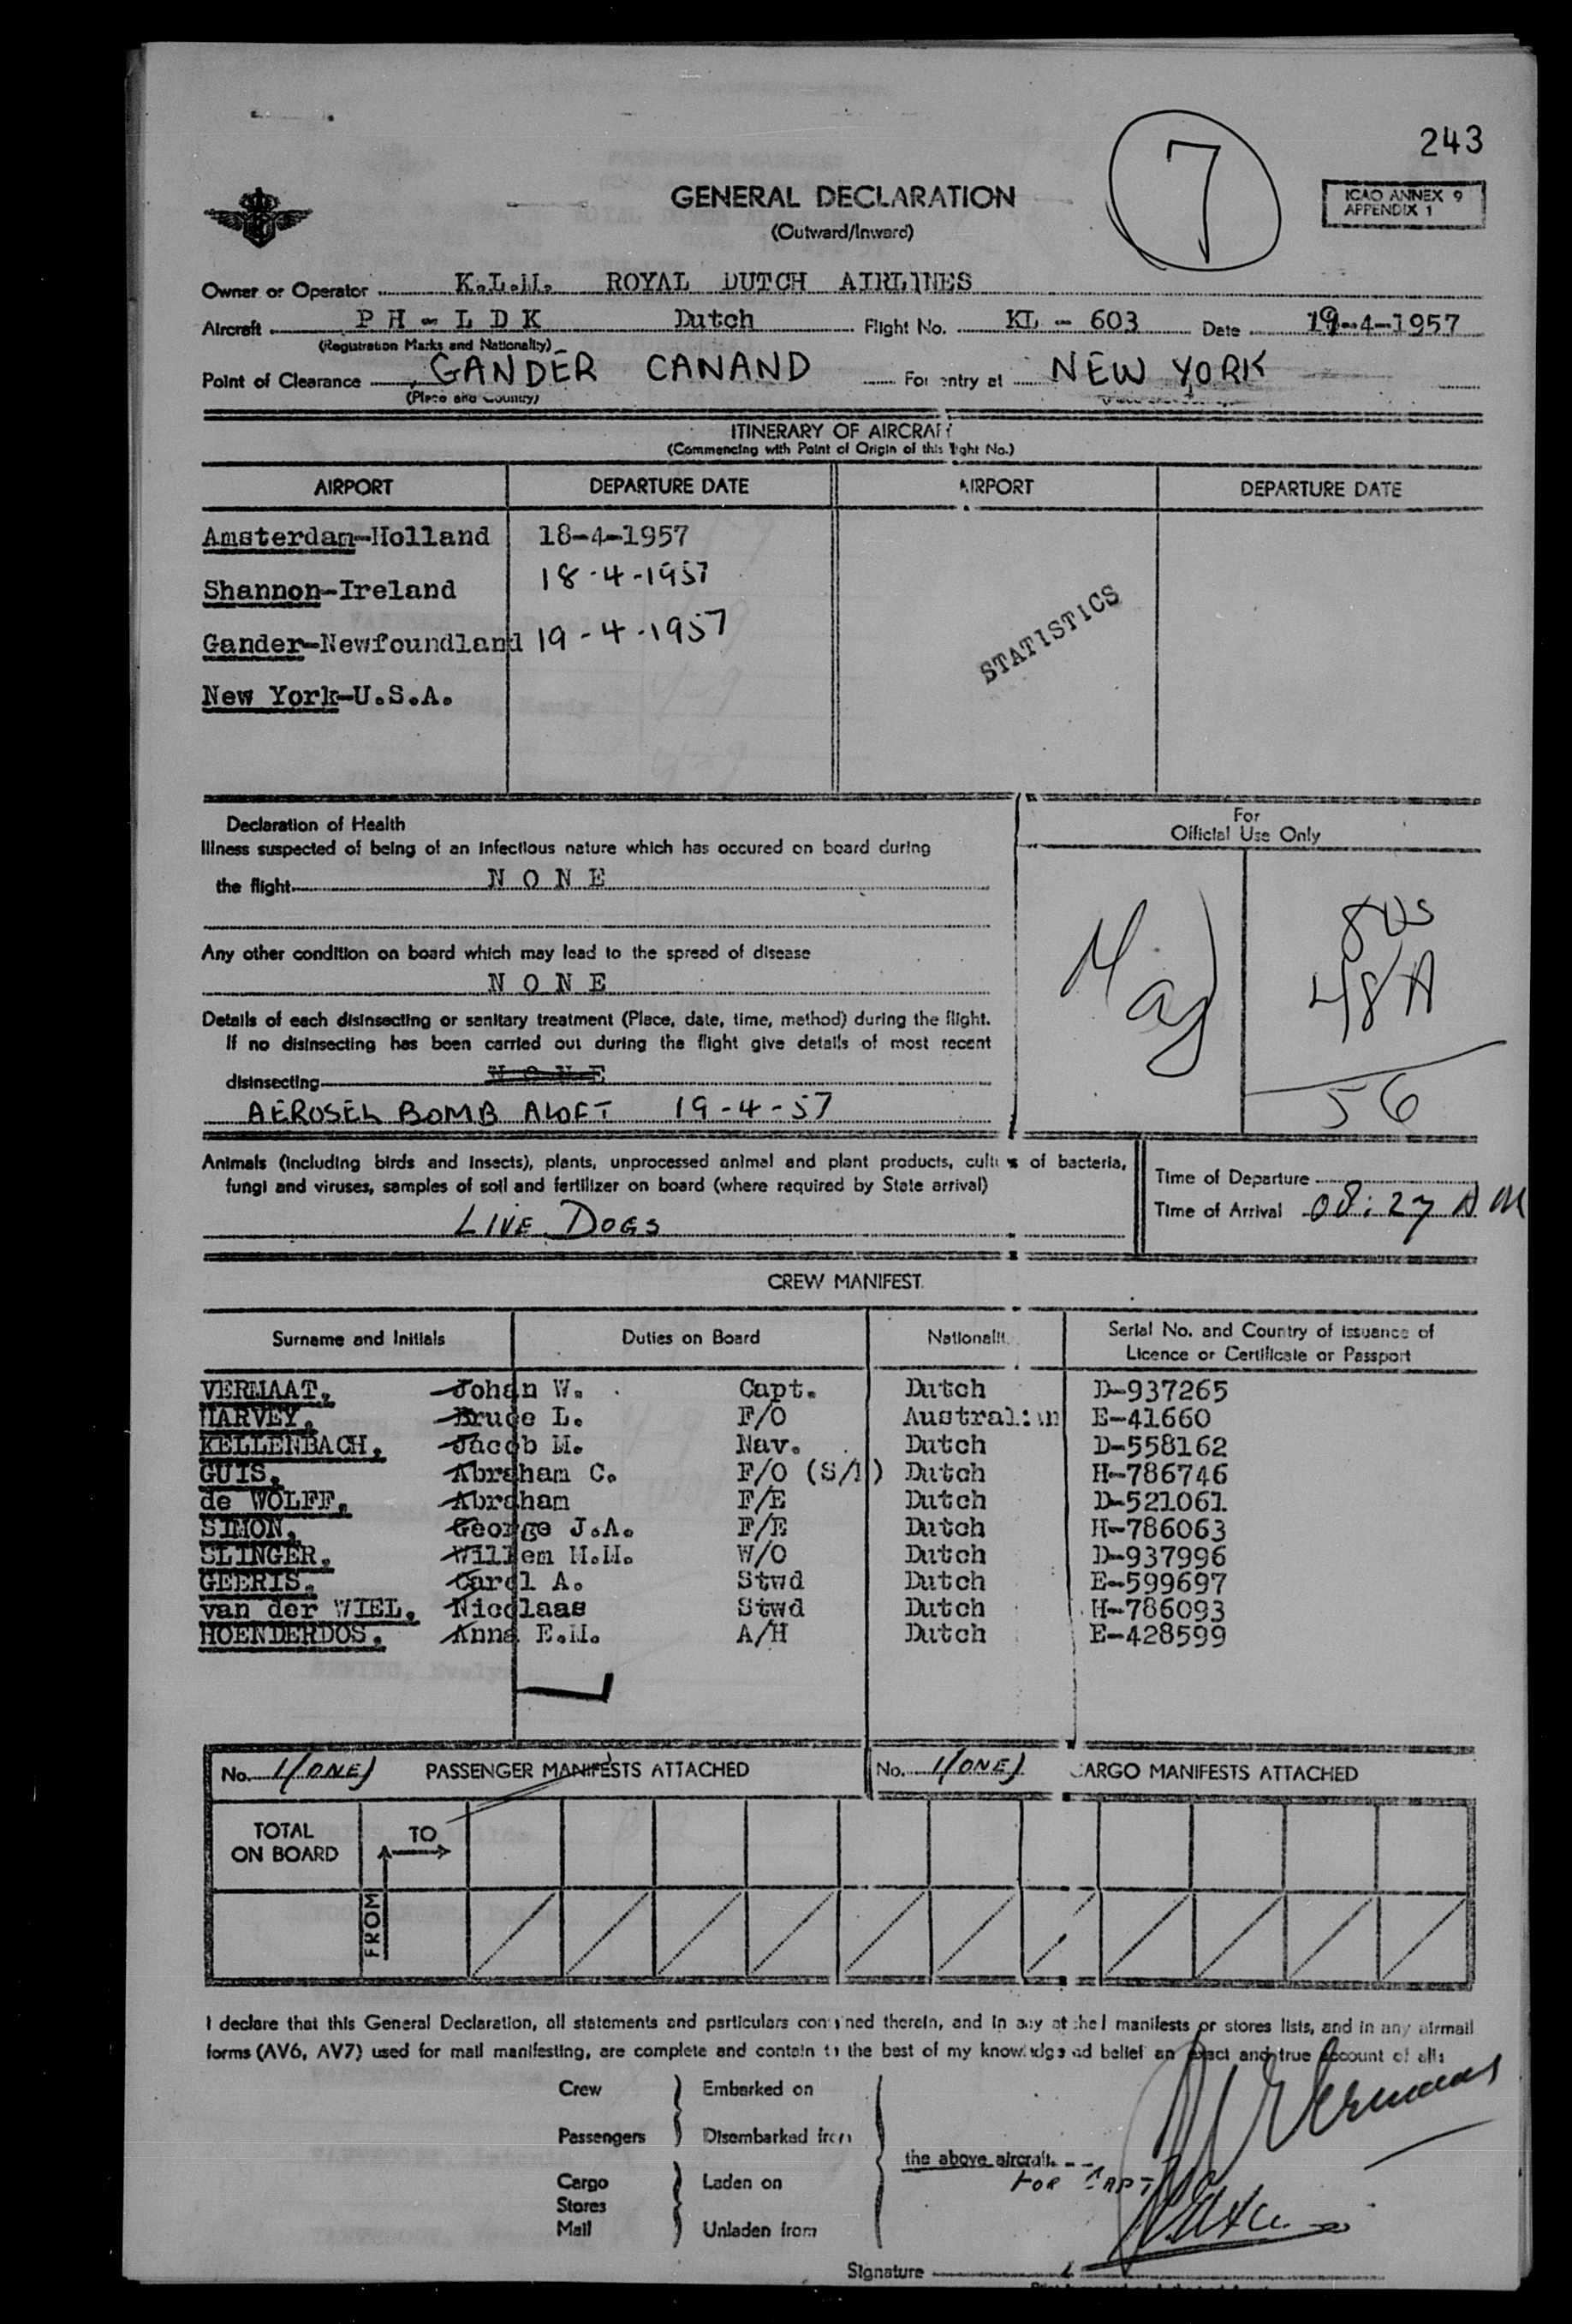 243
7
GENERAL DECLARATION
(Outward/Inward)
ICAO ANNEX 9
APPENDIX 1
Owner or Operator K.L.M. ROYAL DUTCH AIRLINES
Aircraft PH-LDK Dutch Flight No. KL - 603 Date 19-4-1957
(Registration Marks and Nationality)
Point of Clearance GANDER CANAND For entry at NEW YORK
(Place and Country)
ITINERARY OF AIRCRAFT
(Commencing with Point of Origin of this flight No.)
AIRPORT DEPARTURE DATE AIRPORT DEPARTURE DATE
Amsterdam-Holland 18-4-1957
Shannon-Ireland 18-4-1957
Gander-Newfoundland 19-4-1957
New York-U.S.A.
STATISTICS
Declaration of Health
Illness suspected of being of an infectious nature which has occured on board during
the flight NONE
Any other condition on board which may lead to the spread of disease
NONE
Details of each disinsecting or sanitary treatment (Place, date, time, method) during the flight.
If no disinsecting has been carried out during the flight give details of most recent
disinsecting NONE
AEROSEL BOMB ALOFT 19-4-57
For
Official Use Only
8 US
48 A
56
Animals (including birds and insects), plants, unprocessed animal and plant products, cultures of bacteria,
fungi and viruses, samples of soil and fertilizer on board (where required by State arrival)
LIVE DOGS
Time of Departure
Time of Arrival 08:27 AM
CREW MANIFEST
Surname and Initials Duties on Board Nationality Serial No. and Country of issuance of
Licence or Certificate or Passport
VERMAAT, Johan W. Capt. Dutch D-937265
HARVEY, Bruce L. F/O Australian E-41660
KELLENBACH, Jacob M. Nav. Dutch D-558162
GUIS, Abraham C. F/O Dutch H-786746
de WOLFF, Abraham F/E Dutch D-521061
SIMON, George J.A. F/E Dutch H-786063
SLINGER, Willem H.M. W/O Dutch D-937996
GEERTS, Carel A. Stwd Dutch E-599697
van der WIEL, Nicolaas Stwd Dutch H-786093
HOENDERDOS, Anna E.M. A/H Dutch E-428599
No. 1(ONE) PASSENGER MANIFESTS ATTACHED No. 1(ONE) CARGO MANIFESTS ATTACHED
TOTAL
ON BOARD
TO
FROM
I declare that this General Declaration, all statements and particulars contained therein, and in any attached manifests or stores lists, and in any airmail
forms (AV6, AV7) used for mail manifesting, are complete and contain to the best of my knowledge and belief an exact and true account of all:
Crew Embarked on
Passengers Disembarked from
the above aircraft.
FOR CAPT
Cargo Laden on
Stores
Mail Unladen from
Signature